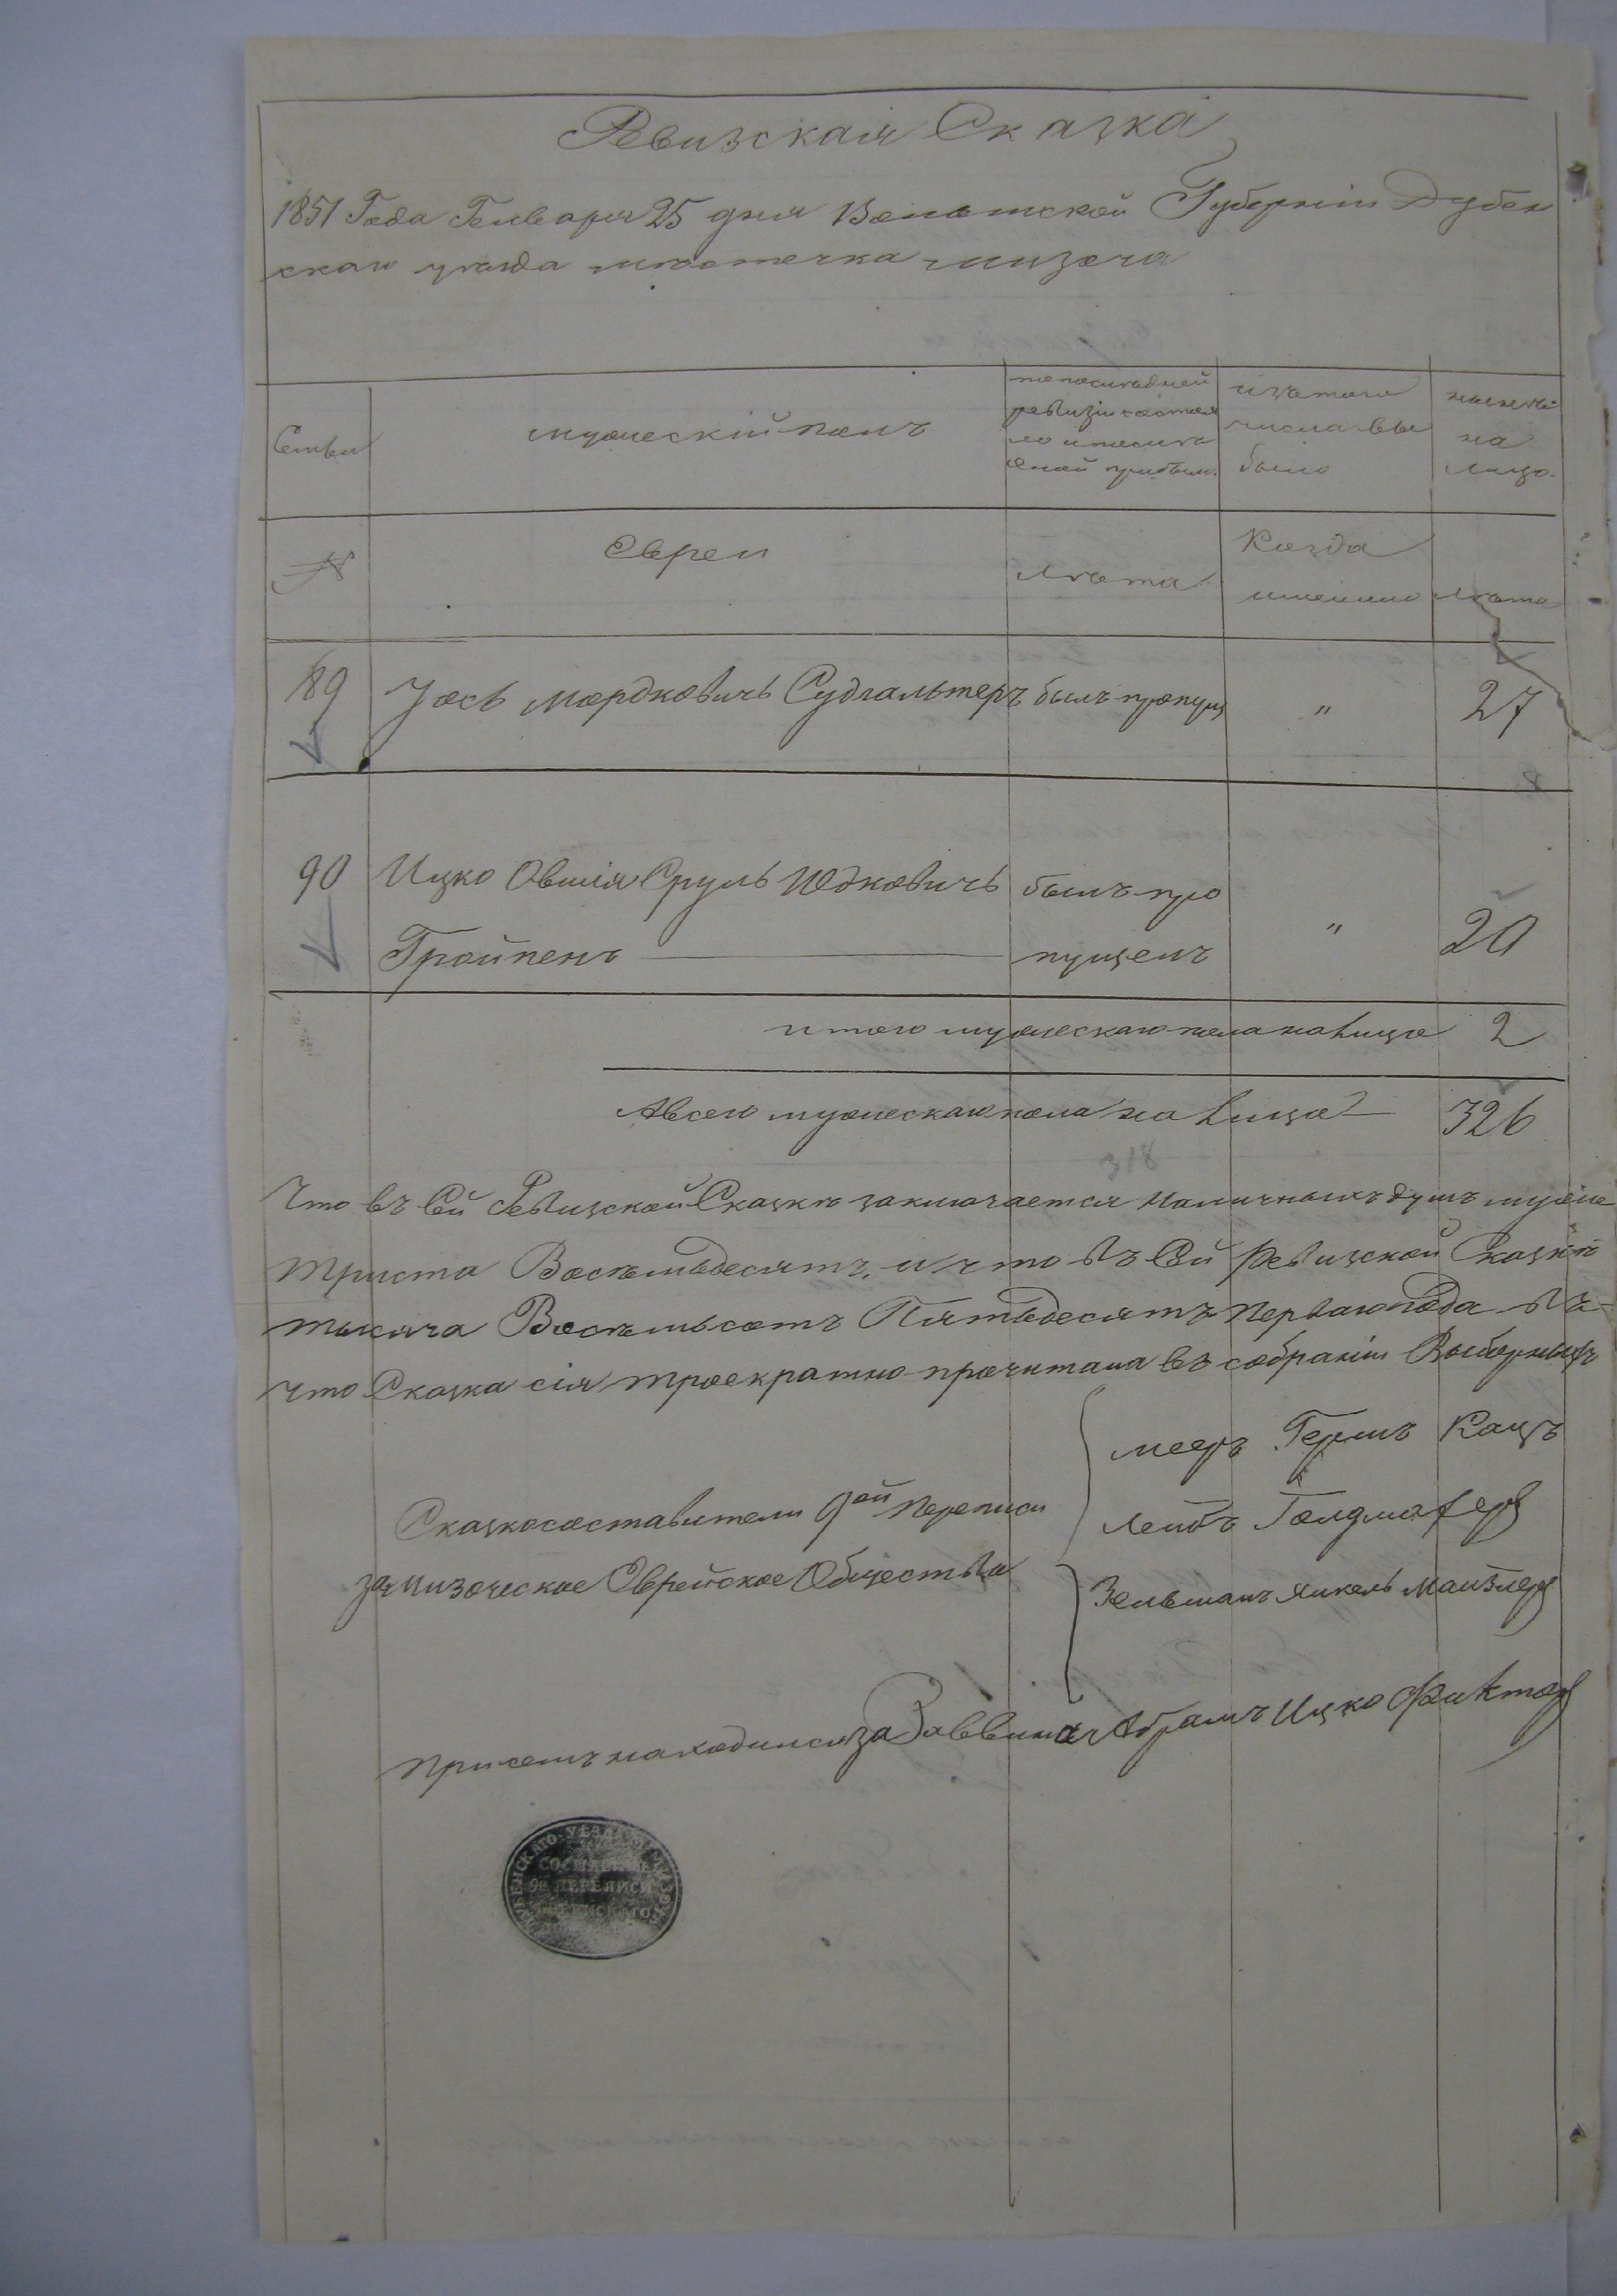 Ревизская Сказка
1851 Года Генваря 25 дня Волынской Губерніи Дубен
скаго уезда местечка Мизоча
Семьи
мужескій полъ
по последней
ревизіи состоя
ло и после
оной прибыло.
изъ того
числа вы
было
ныне
на
лицо.
№
Евреи
лета
Когда
именно
лета
89
Іось Мордковичь Судгальтеръ
былъ пропущ
"
27
90
Ицко Овшія Сруль Юдковичь
былъ про
Гройпенъ
пущенъ
"
20
итого мужескаго пола на лицо 2
А всего мужескаго пола на лицо 326
318
Что въ Сей Ревизской Сказкѣ заключается наличныхъ душъ мужес
триста Восемьдесятъ, и что въ Сей Ревизской Сказкѣ
тысяча Восемьсотъ Пятьдесятъ Перваго года
что Сказка сія троекратно прочитана въ собраніи Выборныхъ
Мееръ Гершъ Кацъ
Сказкосоставители 9ой Переписи
Лейбъ
за Мизочское Еврейское Общество
Зельманъ Янкель Майзлер
При семъ находился за Раввина Абрамъ Ицко Фактор
ДУБЕНСКАГО УѢЗДА
СОСТАВИТЕЛ
9й ПЕРЕПИСИ